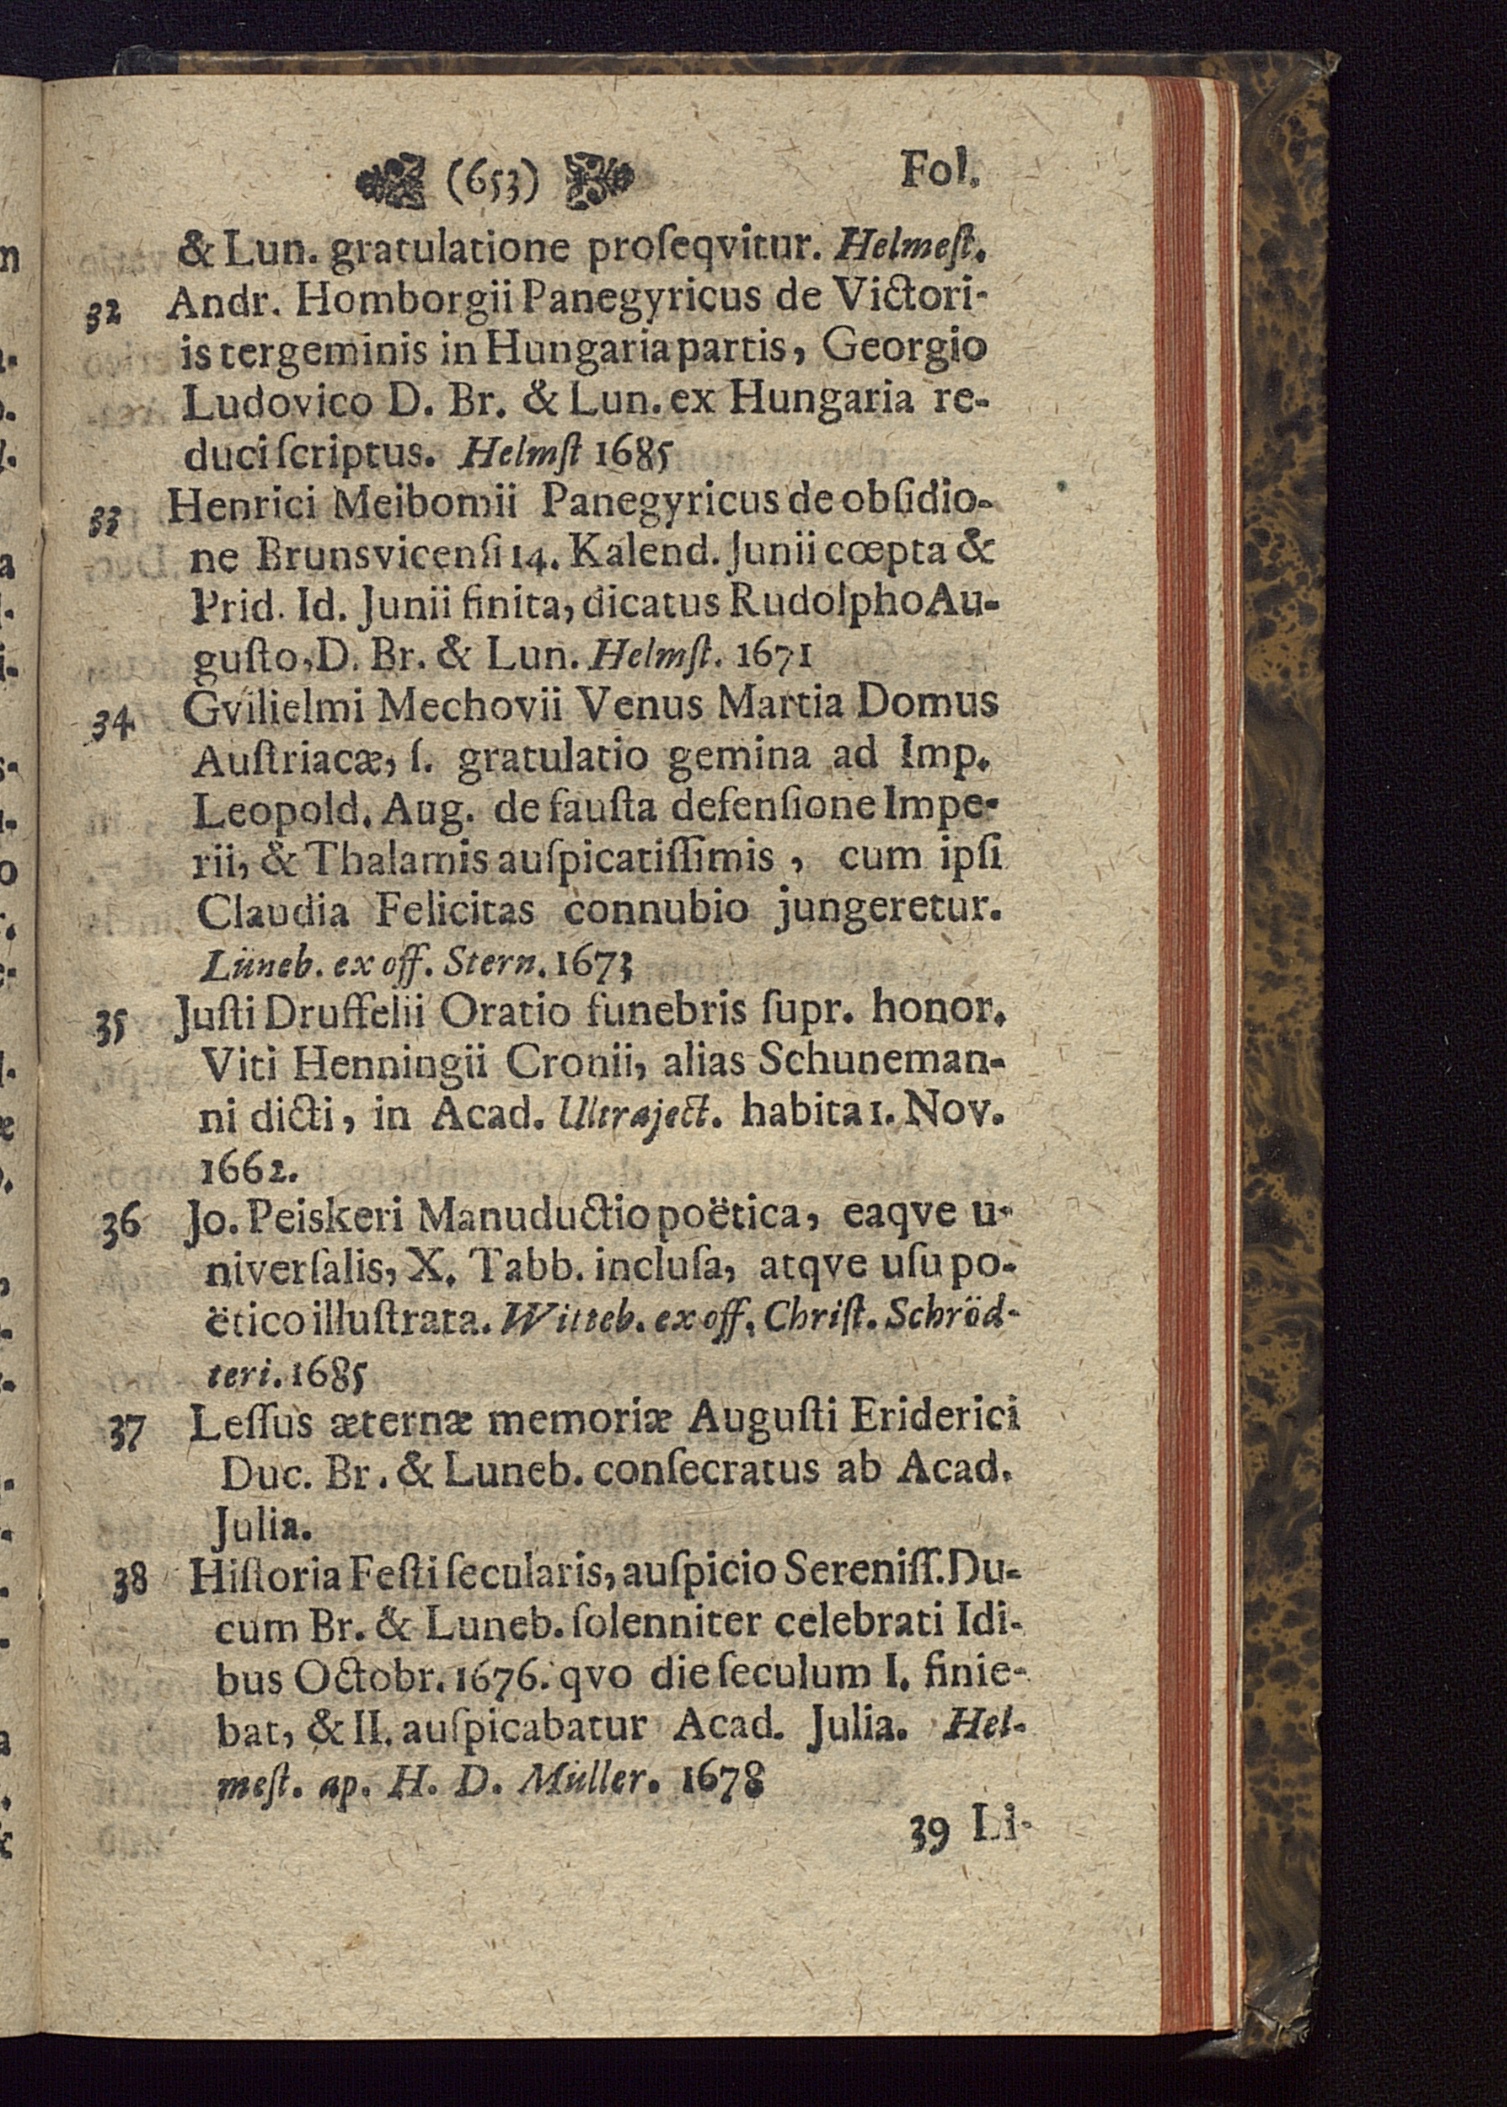 (653) Fol.
& Lun. gratulatione proſeqvitur. Helmeſt.
32 Andr. Homborgii Panegyricus de Victori-
is tergeminis in Hungaria partis, Georgio
Ludovico D. Br. & Lun. ex Hungaria re-
duci ſcriptus. Helmſt 1685
33 Henrici Meibomii Panegyricus de obſidio-
ne Brunsvicenſi 14. Kalend. Junii cœpta &
Prid. Id. Junii finita, dicatus Rudolpho Au-
guſto, D. Br. & Lun. Helmſt. 1671
34 Gvilielmi Mechovii Venus Martia Domus
Auſtriacæ, ſ. gratulatio gemina ad Imp.
Leopold. Aug. de fauſta defenſione Impe-
rii, & Thalamis auſpicatiſſimis, cum ipſi
Claudia Felicitas connubio jungeretur.
Lüneb. ex off. Stern. 1673
35 Juſti Druffelii Oratio funebris ſupr. honor.
Viti Henningii Cronii, alias Schuneman-
ni dicti, in Acad. Ultraject. habita 1. Nov.
1662.
36 Jo. Peiskeri Manuductio poëtica, eaqve u-
niverſalis, X. Tabb. incluſa, atqve uſu po-
ëtico illuſtrata. Witteb. ex off. Chriſt. Schröd-
teri. 1685
37 Leſſus æternæ memoriæ Auguſti Eriderici
Duc. Br. & Luneb. conſecratus ab Acad.
Julia.
38 Hiſtoria Feſti ſecularis, auſpicio Sereniſſ. Du-
cum Br. & Luneb. ſolenniter celebrati Idi-
bus Octobr. 1676. qvo die ſeculum I. finie-
bat, & II. auſpicabatur Acad. Julia. Hel-
meſt. ap. H. D. Müller. 1678
39 Li-